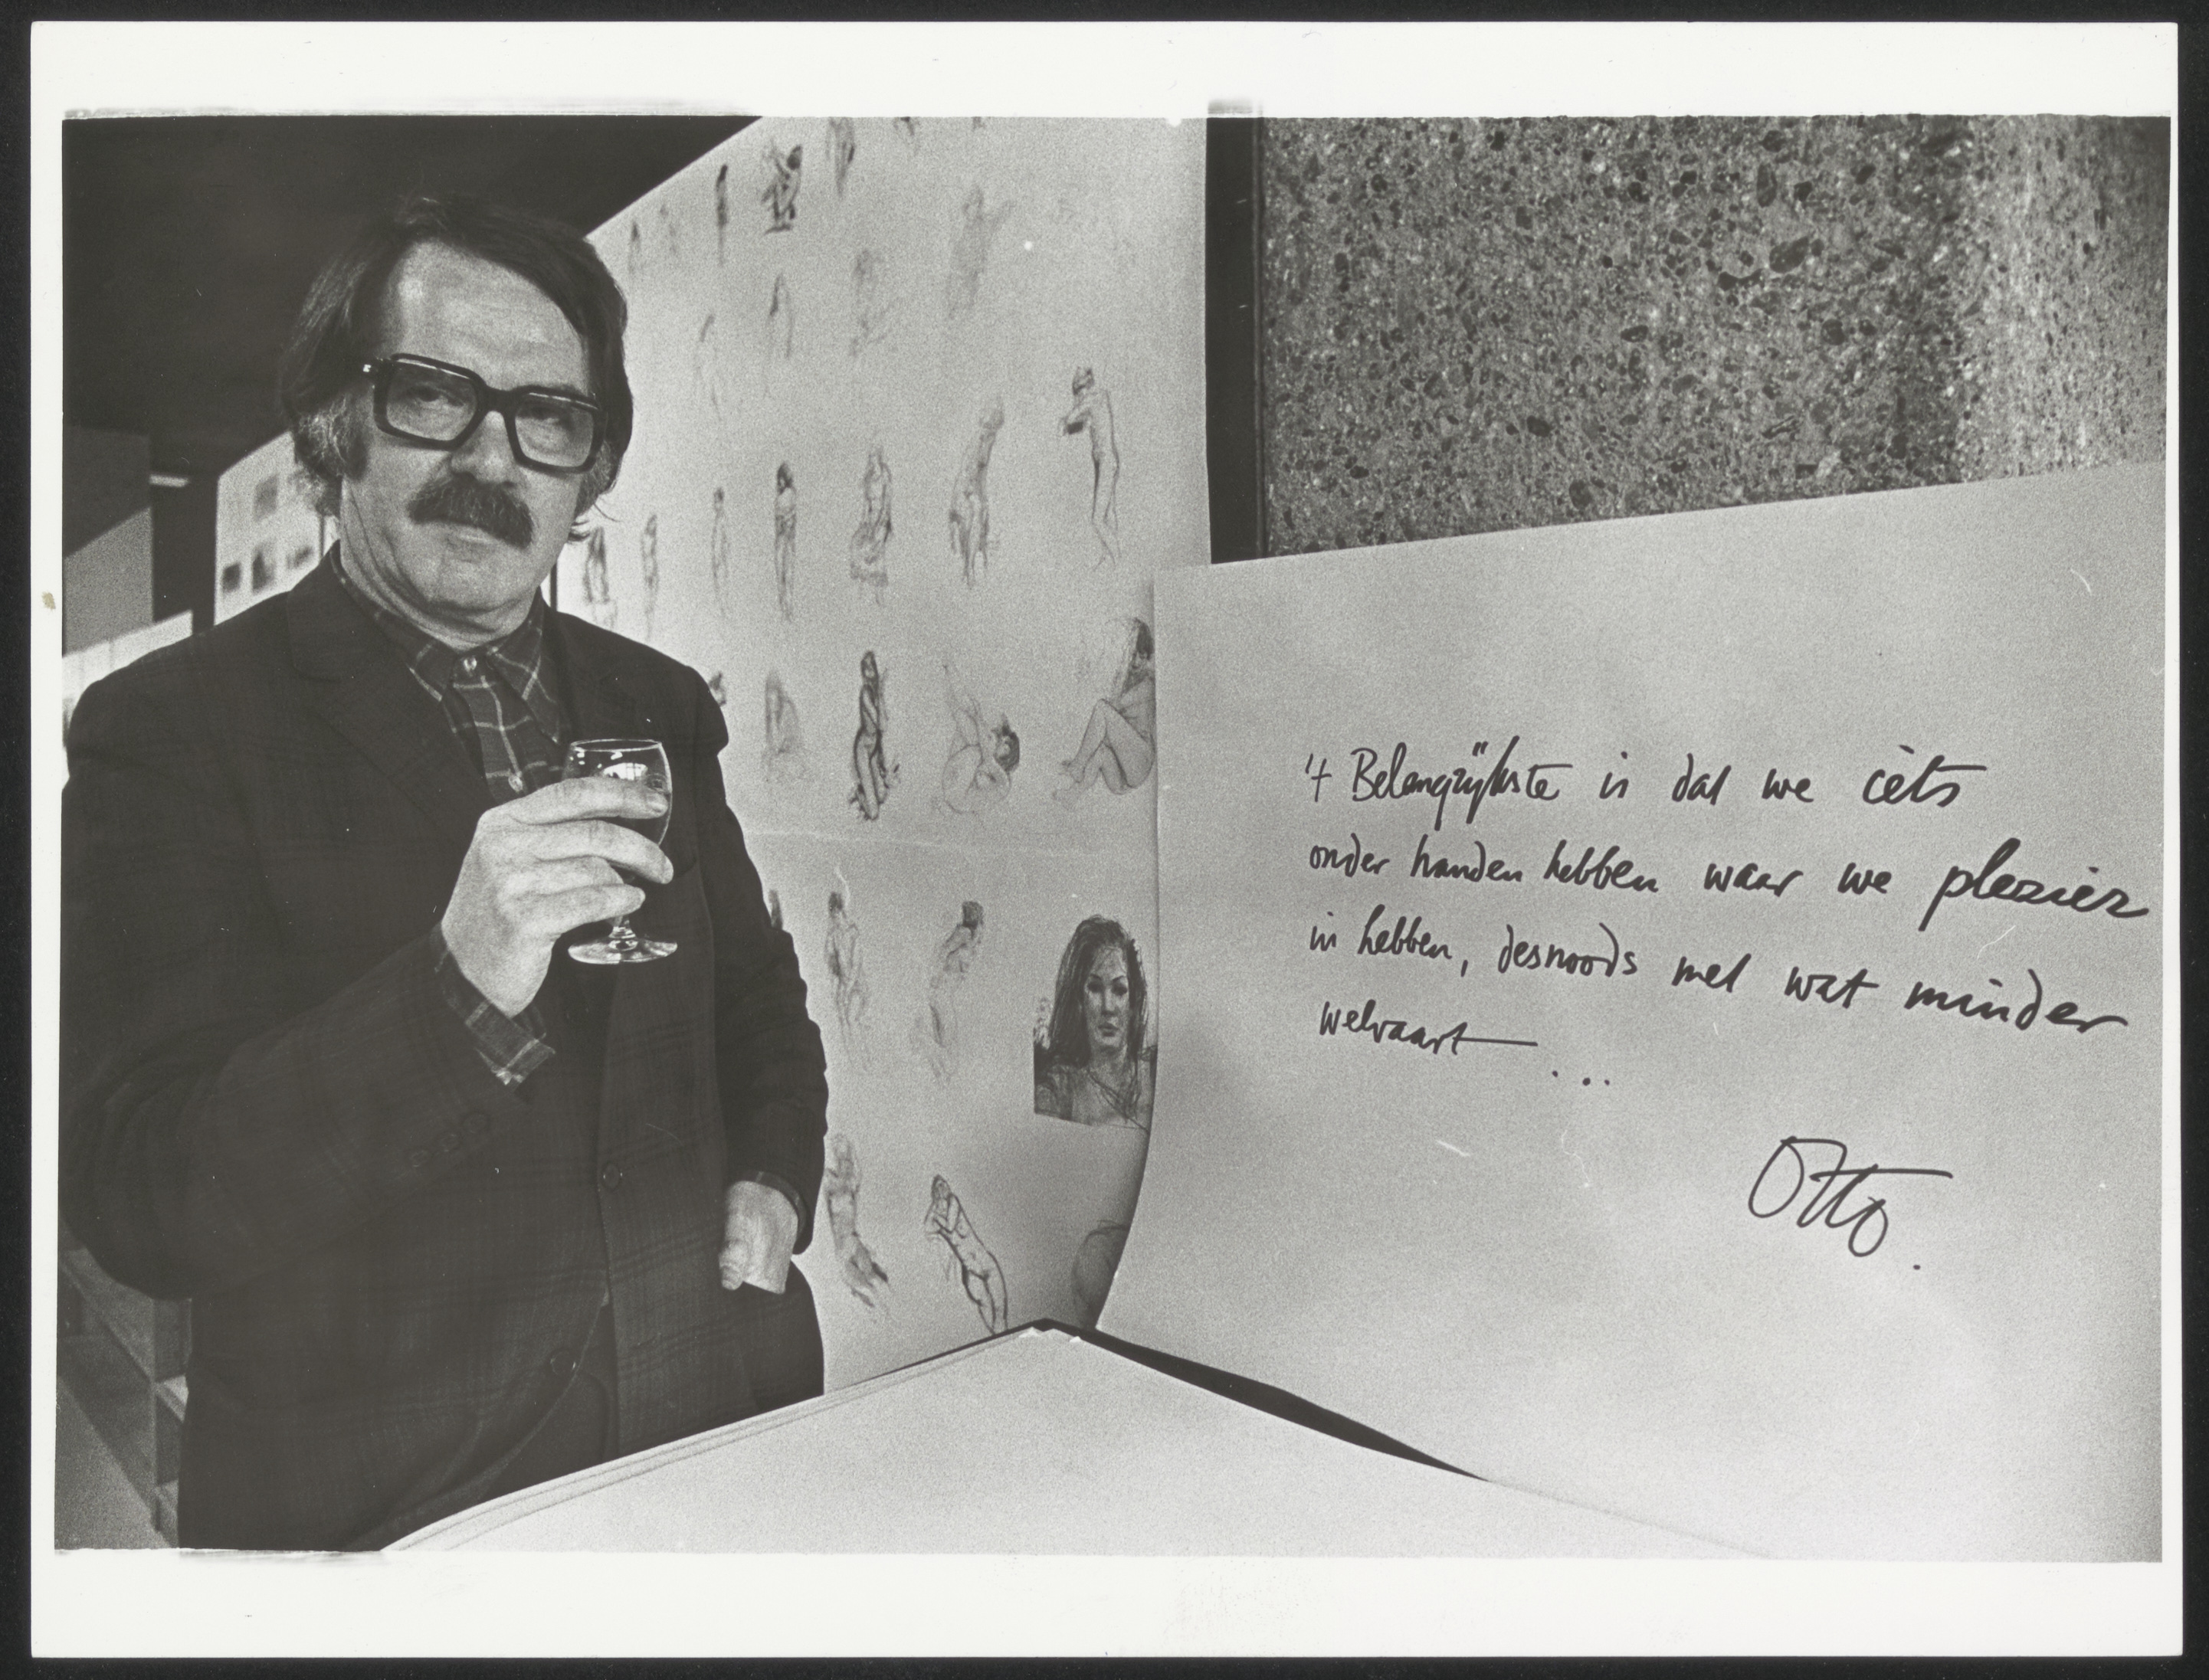 't Belangrijkste is dat we iets
onder handen hebben waar we plezier
in hebben, desnoods met wat minder
welvaart ...
Otto.